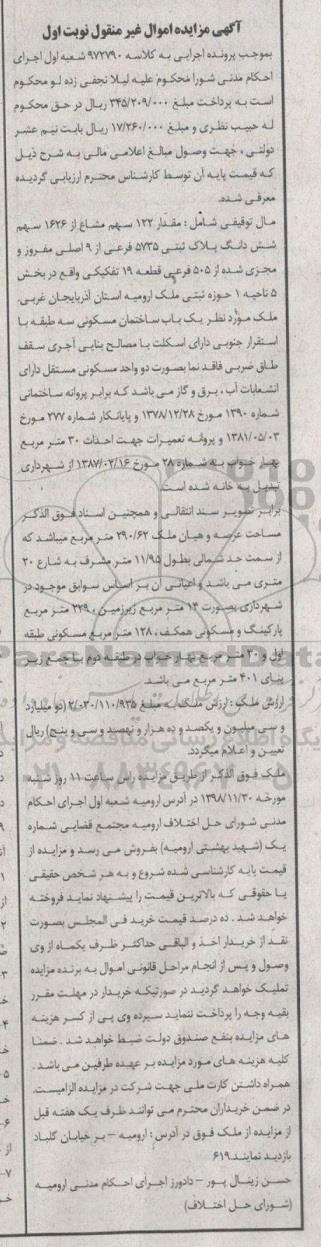 آگهی مزایده اموال غیر منقول نوبت اول
بموجب پرونده اجرایی به کلاسه ۹۷۲۷۹۰ شعبه اول اجرای
احکام مدنی شورا محکوم علیه لیلا نجفی زده لو محکوم
است به پرداخت مبلغ ۳۴۵/۲۰۹/۰۰۰ ریال در حق محکوم
له حبیب نظری و مبلغ ۱۷/۲۶۰/۰۰۰ ریال بابت نیم عشر
دولتی ، جهت وصول مبالغ اعلامی مالی به شرح ذیل
که قیمت پایه آن توسط کارشناس محترم ارزیابی گردیده
معرفی شده.
مال توقیفی شامل : مقدار ۱۲۲ سهم مشاع از ۱۶۲۶ سهم
شش دانگ پلاک ثبتی ۵۷۳۵ فرعی از ۹ اصلی مفروز و
مجزی شده از ۵۰۵ فرعی قطعه ۱۹ تفکیکی واقع در بخش
۵ ناحیه ۱ حوزه ثبتی ملک ارومیه استان آذربایجان غربی.
ملک مورد نظر یک باب ساختمان مسکونی سه طبقه با
استقرار جنوبی دارای اسکلت با مصالح بنایی آجری سقف
طاق ضربی فاقد نما بصورت دو واحد مسکونی مستقل دارای
انشعابات آب ، برق و گاز می باشد که برابر پروانه ساختمانی
شماره ۱۳۹۰ مورخ ۱۳۷۸/۱۲/۲۸ و پایانکار شماره ۲۷۷ مورخ
۱۳۸۱/۰۵/۰۳ و پروانه تعمیرات جهت احداث ۳۰ متر مربع
بهار خواب به شماره ۲۸ مورخ ۱۳۸۷/۰۲/۱۶ از شهرداری
تبدیل به خانه شده است
برابر تصویر سند انتقالی و همچنین اسناد فوق الذکر
مساحت عرصه و هیان ملک ۲۹۰/۶۲ متر مربع میباشد که
از سمت حد شمالی بطول ۱۱/۹۵ متر مشرف به شارع ۲۰
متری می باشد و اعیانی آن بر اساس سوابق موجود در
شهرداری بصورت ۱۴ متر مربع زیرزمین، ۲۲۹ متر مربع
پارکینگ و مسکونی همکف، ۱۲۸ متر مربع مسکونی طبقه
اول و ۳۰ متر مربع بهار خواب در طبقه دوم با جمع زیر
بنای ۴۰۱ متر مربع می باشد.
ارزش ملک : ارزش ملک به مبلغ ۲/۰۳۰/۱۱۰/۹۳۵ (دو میلیارد
و سی میلیون و یکصد و ده هزار و نهصد و سی و پنج) ریال
تعیین و اعلام میگردد.
ملک فوق الذکر از طریق مزایده راس ساعت ۱۱ روز شنبه
مورخه ۱۳۹۸/۱۱/۳۰ در آدرس ارومیه شعبه اول اجرای احکام
مدنی شورای حل اختلاف ارومیه مجتمع قضایی شماره
یک (شهید بهشتی ارومیه) بفروش می رسد و مزایده از
قیمت پایه کارشناسی شده شروع و به هر شخص حقیقی
یا حقوقی که بالاترین قیمت را پیشنهاد نماید فروخته
خواهد شد . ده درصد قیمت خرید فی المجلس بصورت
نقد از خریدار اخذ و الباقی حداکثر ظرف یکماه از وی
وصول و پس از انجام مراحل قانونی اموال به برنده مزایده
تملیک خواهد گردید در صورتیکه خریدار در مهلت مقرر
بقیه وجه را پرداخت ننماید سپرده وی پی از کسر هزینه
های مزایده بنفع صندوق دولت ضبط خواهد شد . ضمنا
کلیه هزینه های مورد مزایده بر عهده طرفین می باشد .
همراه داشتن کارت ملی جهت شرکت در مزایده الزامیست.
در ضمن خریداران محترم می توانند ظرف یک هفته قبل
از مزایده از ملک فوق در آدرس : ارومیه – بر خیابان گلباد
بازدید نمایند.۶۱۹
حسن زینال پور – دادورز اجرای احکام مدنی ارومیه
(شورای حل اختلاف)